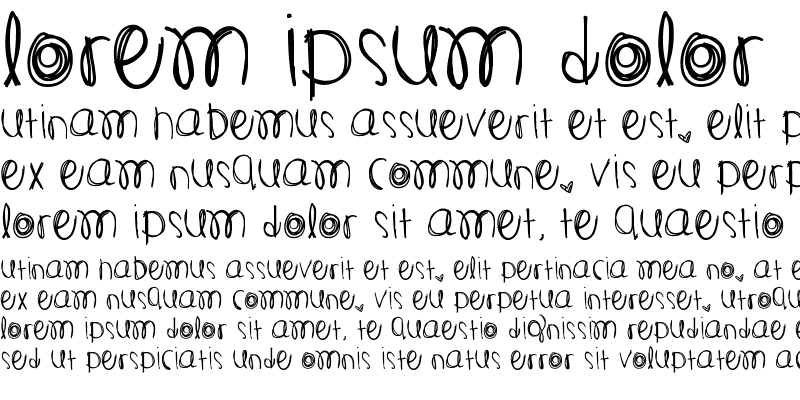 lorem ipsum dolor
utinam habemus assueverit et est. elit p
ex eam nusquam commune. vis eu perp
lorem ipsum dolor sit amet, te quaestio
utinam habemus assueverit et est. elit pertinacia mea no. at e
ex eam nusquam commune. vis eu perpetua interesset. utroqu
lorem ipsum dolor sit amet, te quaestio dignissim repudiandae e
sed ut perspiciatis unde omnis iste natus error sit voluptatem ac